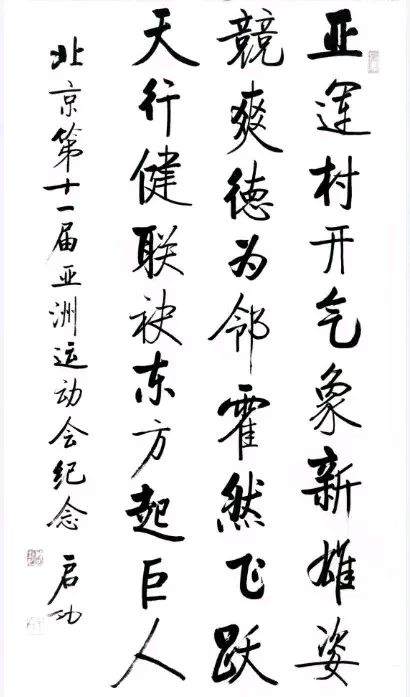 亚运村开气象新雄姿
競爽德为邻霍然飞跃
天行健联袂东方起巨人
北京第十一届亚洲运动会纪念 启功